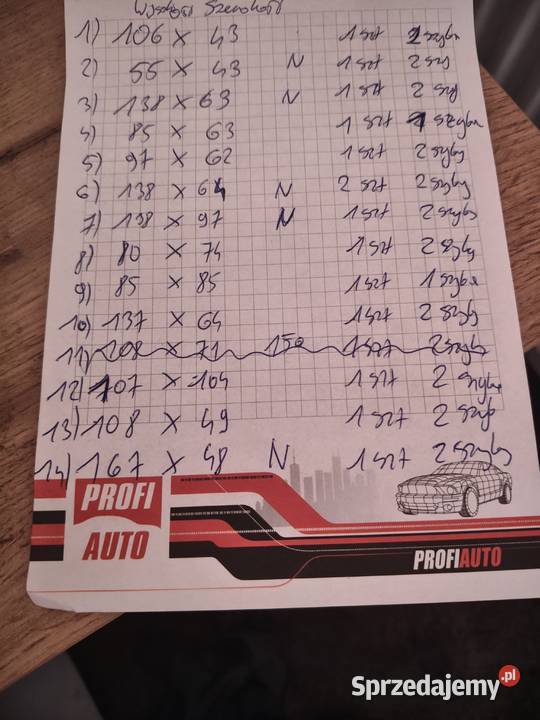 Wysokość Szerokość
1) 106 x 43 1 szt 2 szyba
2) 55 x 43 N 1 szt 2 szy
3) 138 x 63 N 1 szt 2 szy
4) 85 x 63 1 szt 1 szyba
5) 97 x 62 1 szt 2 szyby
6) 138 x 64 N 2 szt 2 szyby
7) 138 x 97 N 1 szt 2 szyby
8) 80 x 74 1 szt 2 szyby
9) 85 x 85 1 szt 1 szyba
10) 137 x 64 1 szt 2 szyby
11) 208 x 71 150 1 szt 2 szyby
12) 107 x 104 1 szt 2 szyby
13) 108 x 49 1 szt 2 szyb
14) 167 x 48 N 1 szt 2 szyby
PROFI
AUTO
PROFIAUTO
Sprzedajemy.pl